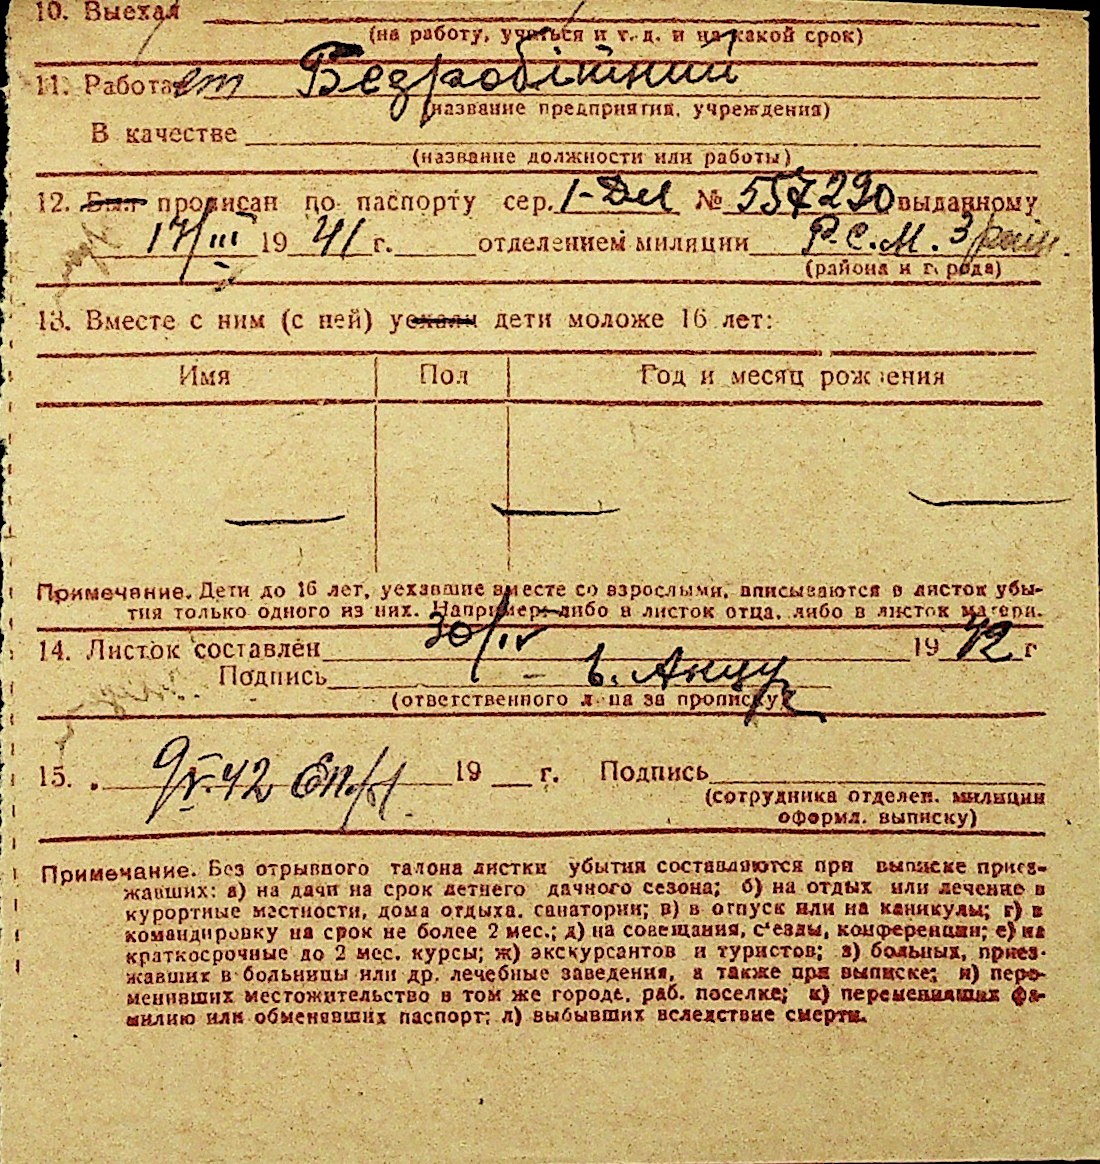 10. Выехал
(на работу, учиться и т. д. и на какой срок)
11. Работает Безработний
(название предприятия, учреждения)
В качестве
(название должности или работы)
12. Был прописан по паспорту сер. № 557290 выданному
17/III 19 41 г. отделением милиции Р.С.М. 3 район.
(района и города)
13. Вместе с ним (с ней) уехали дети моложе 16 лет:
Имя Пол Год и месяц рождения
Примечание. Дети до 16 лет, уехавшие вместе со взрослыми, вписываются в листок убы-
тия только одного из них. Например: либо в листок отца, либо в листок матери.
14. Листок составлен 30/IV 19 42 г
Подпись
(ответственного лица за прописку)
15. 9/V.42 19 г. Подпись
(сотрудника отделен. милиции
оформл. выписку)
Примечание. Без отрывного талона листки убытия составляются при выписке приез-
жавших: а) на дачи на срок летнего дачного сезона; б) на отдых или лечение в
курортные местности, дома отдыха, санатории; в) в отпуск или на каникулы; г) в
командировку на срок не более 2 мес.; д) на совещания, съезды, конференции; е) на
краткосрочные до 2 мес. курсы; ж) экскурсантов и туристов; з) больных, приез-
жавших в больницы или др. лечебные заведения, а также при выписке; и) пере-
менивших местожительство в том же городе, раб. поселке; к) переменивших фа-
милию или обменявших паспорт; л) выбывших вследствие смерти.